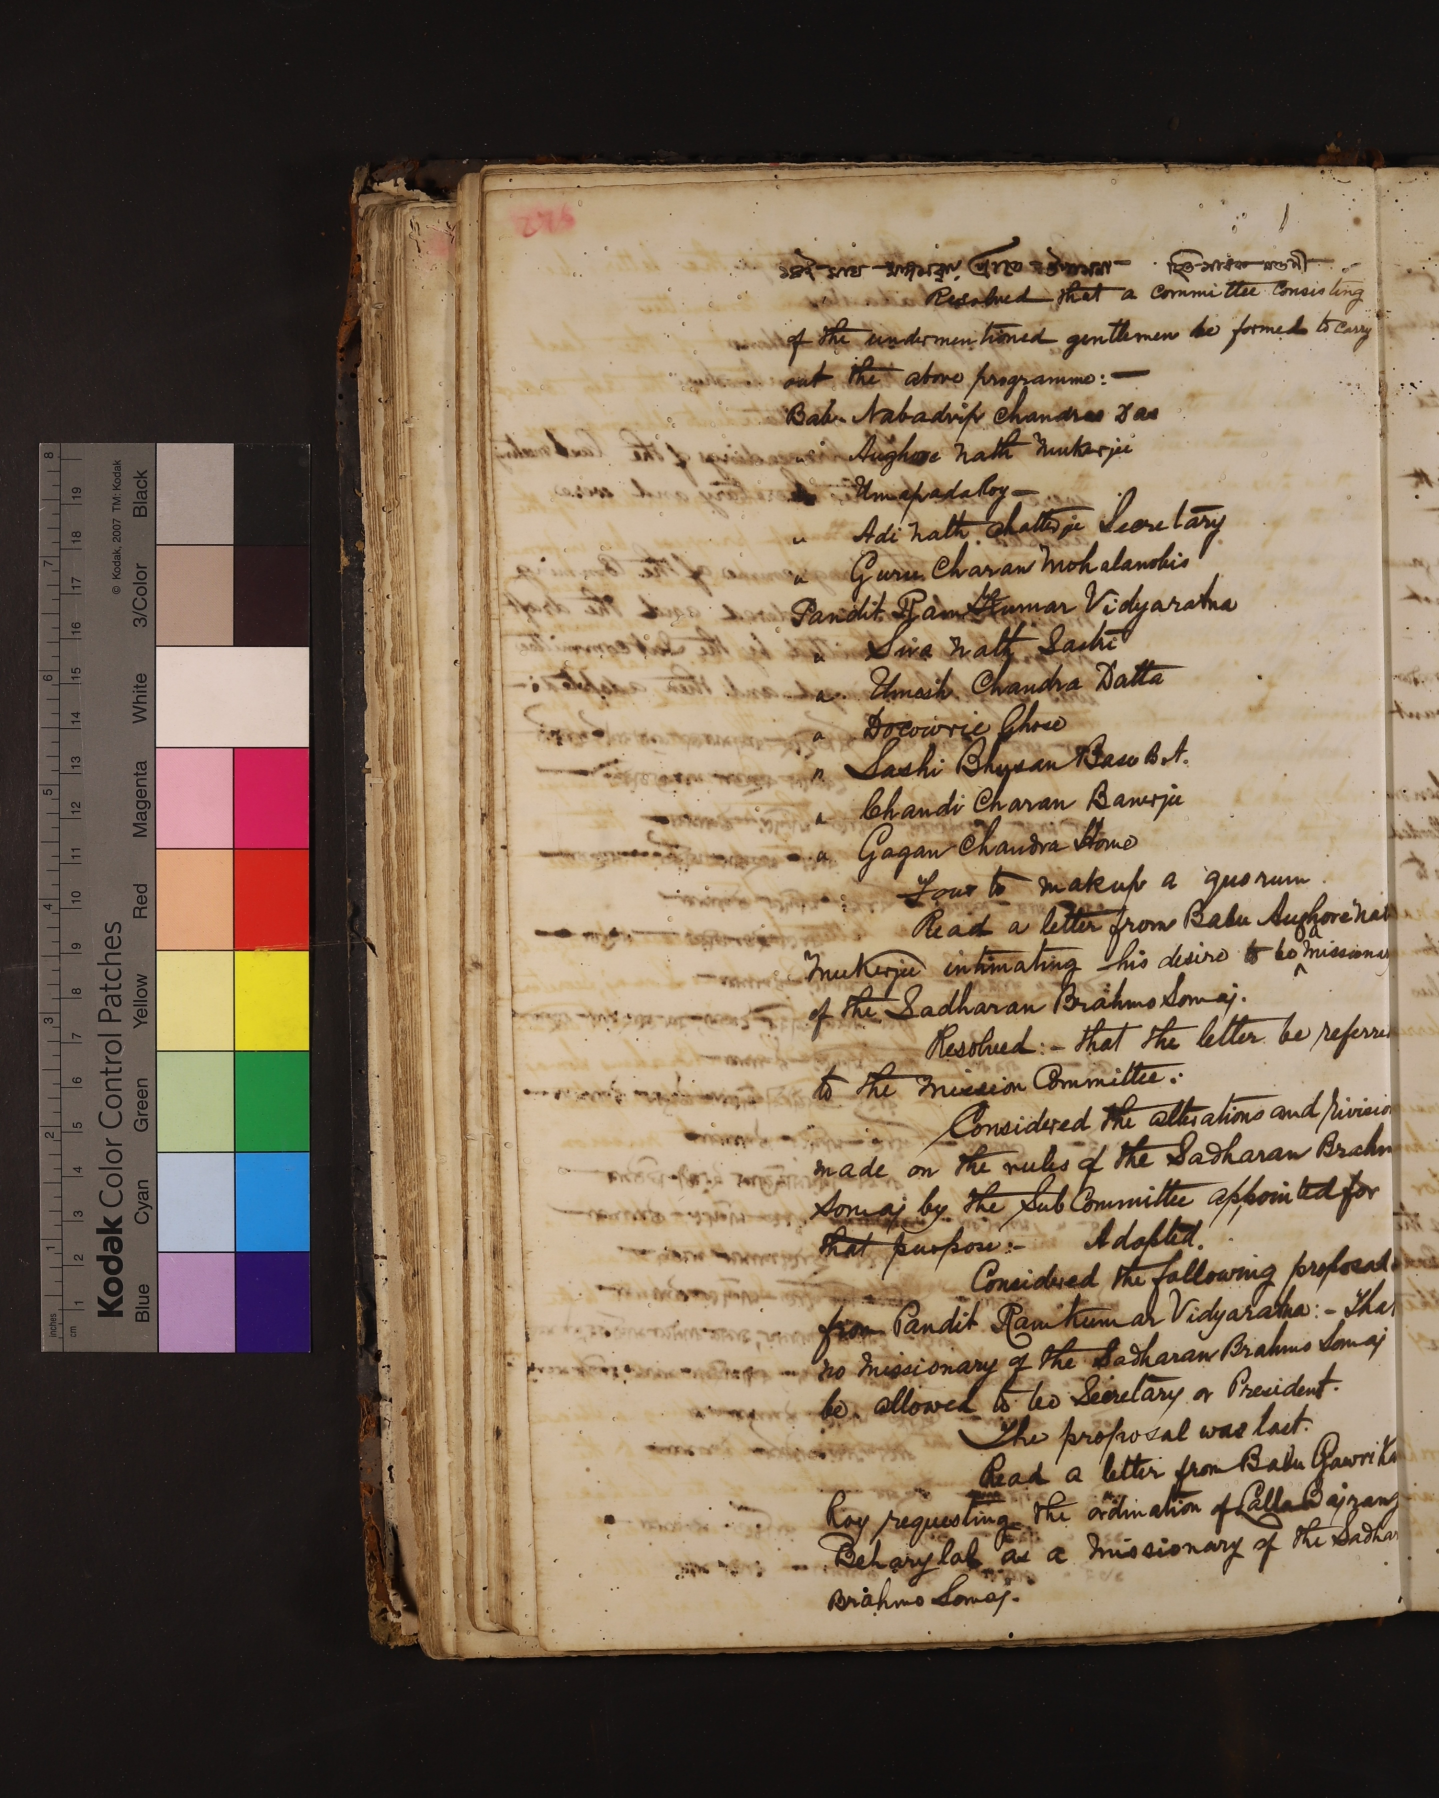 ১৭ই মাঘ মঙ্গলবার প্রাতে
Resolved that a committee consisting
of the undermentioned gentlemen be formed to carry
out the above programme: —
Babu Nabadvip Chandra Das
" Aughore Nath Mukerjee
" Umapada Roy —
" Adi Nath Chatterje Secretary
" Guru Charan Mohalanobis
Pandit Ram Kumar Vidyaratna
" Siva Nath Sastri
" Umesh Chandra Datta
" Docowrie Ghose
" Sashi Bhusan Basu B.A.
" Chandi Charan Banerjee
" Gagan Chandra Home
Four to makup a quorum
Read a letter from Babu Aughore Nat
Mukerjee intimating his desire to be a missionary
of the Sadharan Brahmo Somaj.
Resolved: - that the letter be referre
to the Mission Committee:
Considered the alterations and rivision
made on the rules of the Sadharan Brahm
Somaj by the Sub Committee appointed for
that purpose: - Adopted.
Considered the following proposal
from Pandit Ram Kumar Vidyaratna: - That
no Missionary of the Sadharan Brahmo Somaj
be allowed to be Secretary or President.
The proposal was lost.
Read a letter from Babu Gowri Ka
Roy requesting the ordination of Lalla Bajrang
Behary lal as a Missionary of the Sadhar
Brahmo Somaj.
inches
cm
1 2 3 4 5 6 7 8
1 2 3 4 5 6 7 8 9 10 11 12 13 14 15 16 17 18 19
Kodak Color Control Patches
© Kodak, 2007 TM: Kodak
Blue Cyan Green Yellow Red Magenta White 3/Color Black